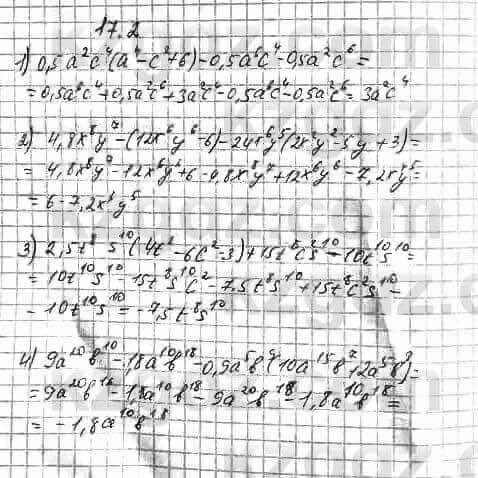 17.2
1) 0,5a²c⁴(a⁴-c²+6)-0,5a⁶c⁴-0,5a²c⁶=
=0,5a⁶c⁴+0,5a²c⁶+3a²c⁴-0,5a⁶c⁴-0,5a²c⁶=3a²c⁴
2) 4,8x⁸y⁷-(12x⁶y⁶-6)-24x⁶y⁵(2x²y²-5y+3)=
=4,8x⁸y⁷-12x⁶y⁶+6-4,8x⁸y⁷+12x⁶y⁶-7,2x⁶y⁵=
=6-7,2x⁶y⁵
3) 2,5t⁸s¹⁰(4t²-6c²-3)+15t⁸c²s¹⁰-10t¹⁰s¹⁰=
=10t¹⁰s¹⁰-15t⁸s¹⁰c²-7,5t⁸s¹⁰+15t⁸c²s¹⁰-
-10t¹⁰s¹⁰=-7,5t⁸s¹⁰
4) 9a²⁰b¹⁰-1,8a¹⁰b¹⁸-0,9a⁵b⁹(10a¹⁵b⁷+2a⁵b⁹)=
=9a²⁰b¹⁶-1,8a¹⁰b¹⁸-9a²⁰b¹⁸-1,8a¹⁰b¹⁸=
=-1,8a¹⁰b¹⁸